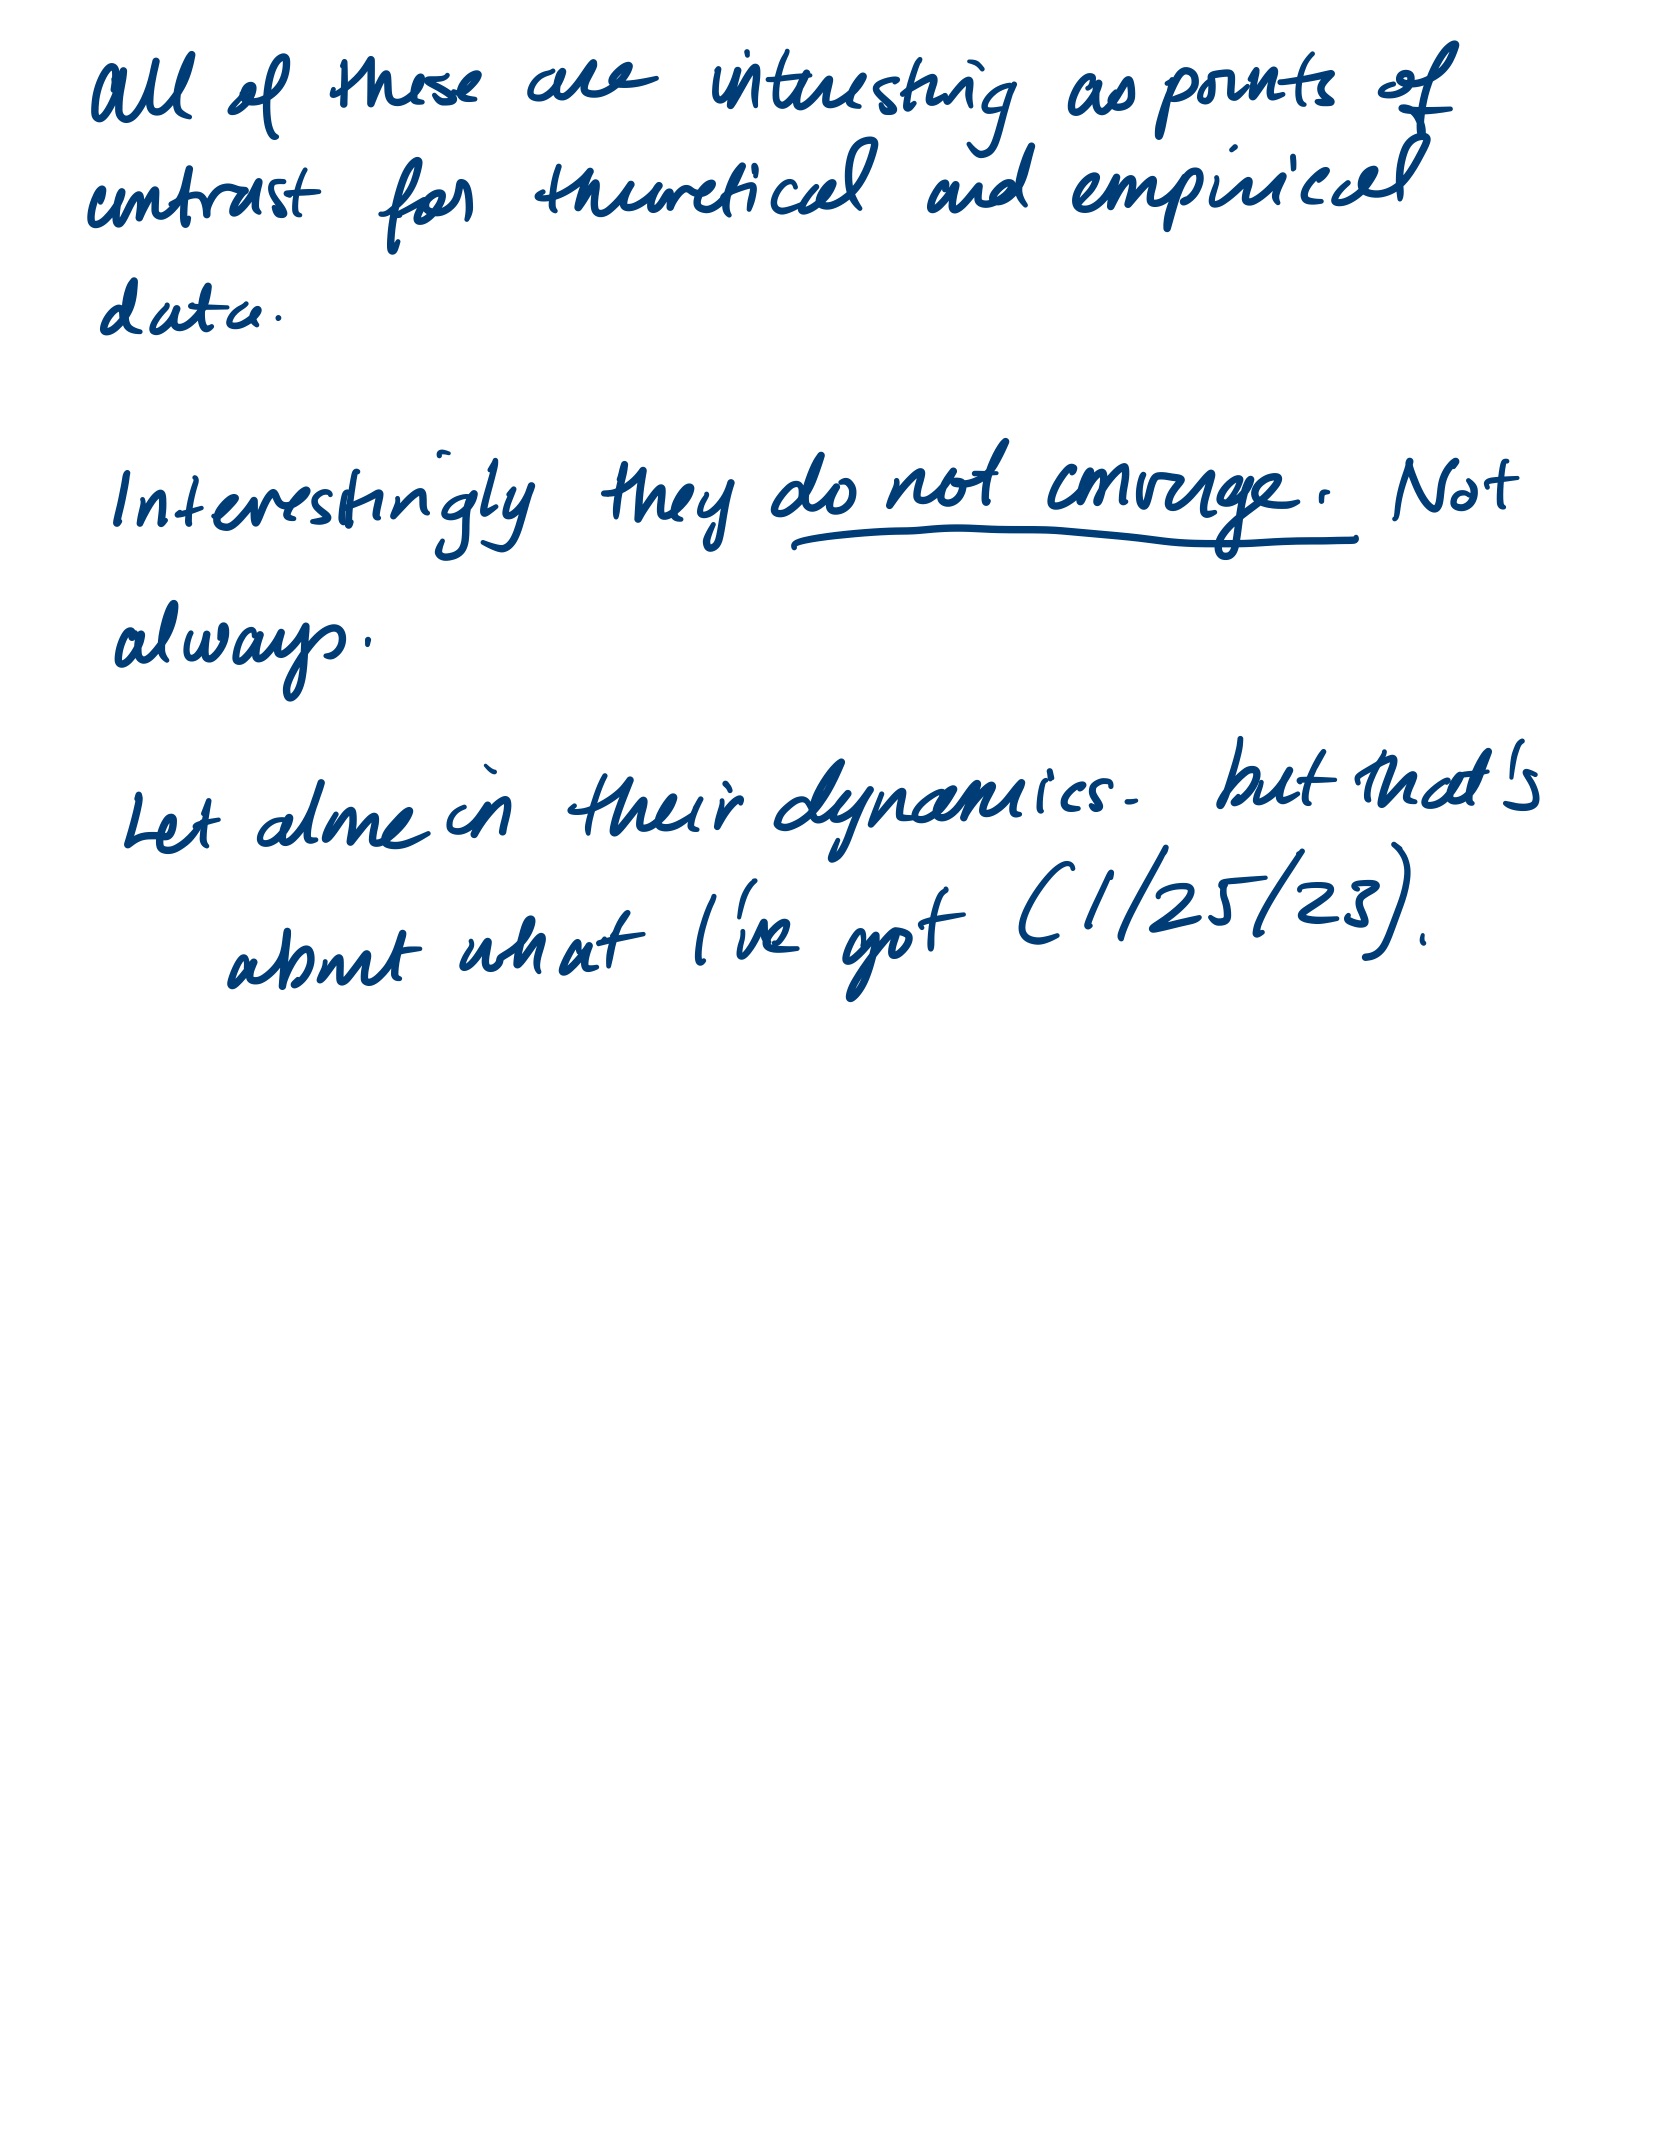 All of these are interesting as points of
contrast for theoretical and empirical
data.
Interestingly they do not converge. Not
always.
Let alone in their dynamics. but that's
about what I've got (1/25/23).